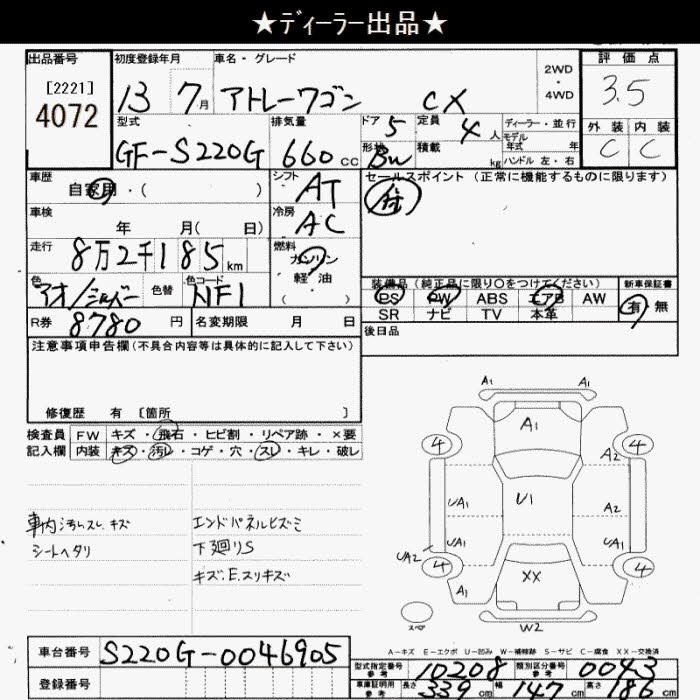 ★ディーラー出品★
出品番号
[2221]
4072
初度登録年月
13 7月
車名・グレード
アトレーワゴン CX
2WD
・
4WD
評価点
3.5
外装 内装
C C
型式
GF-S220G
排気量
660 cc
ドア 5
定員 4人
形状 BW
積載 kg
ディーラー・並行
モデル
年式 年
ハンドル 左・右
車歴
自家用・( )
シフト
AT
セールスポイント(正常に機能するものに限ります)
車検
年 月( 日)
冷房
AC
走行
8万2千185 km
燃料
ガソリン
軽油
( )
色
アオ/シルバー
色替
色コード
NF1
装備品(純正品に限り〇をつけてください)
PS PW ABS エアB AW
SR ナビ TV 本革
新車保証書
有 無
R券 8780 円
名変期限 月 日
後日品
注意事項申告欄(不具合内容等は具体的に記入して下さい)
修復歴 有 〔箇所 〕
検査員 FW キズ・飛石・ヒビ割・リペア跡・×要
記入欄 内装 キズ・汚レ・コゲ・穴・スレ・キレ・破レ
車内汚レスレキズ
シートヘタリ
エンドパネルヒズミ
下廻りS
キズ.E.スリキズ
A1 A1
A1
4 4
A2
UA1 U1 A2
UA1 UA1
UA2
4 4
A1 XX
スペア
W2
A-キズ E-エクボ U-凹み W-補修跡 S-サビ C-腐食 XX-交換済
車台番号 S220G-0046905
登録番号
型式指定番号
参考
10208
類別区分番号
参考
0043
車庫証明用
参考
長さ 339 cm
幅 147 cm
高さ 187 cm